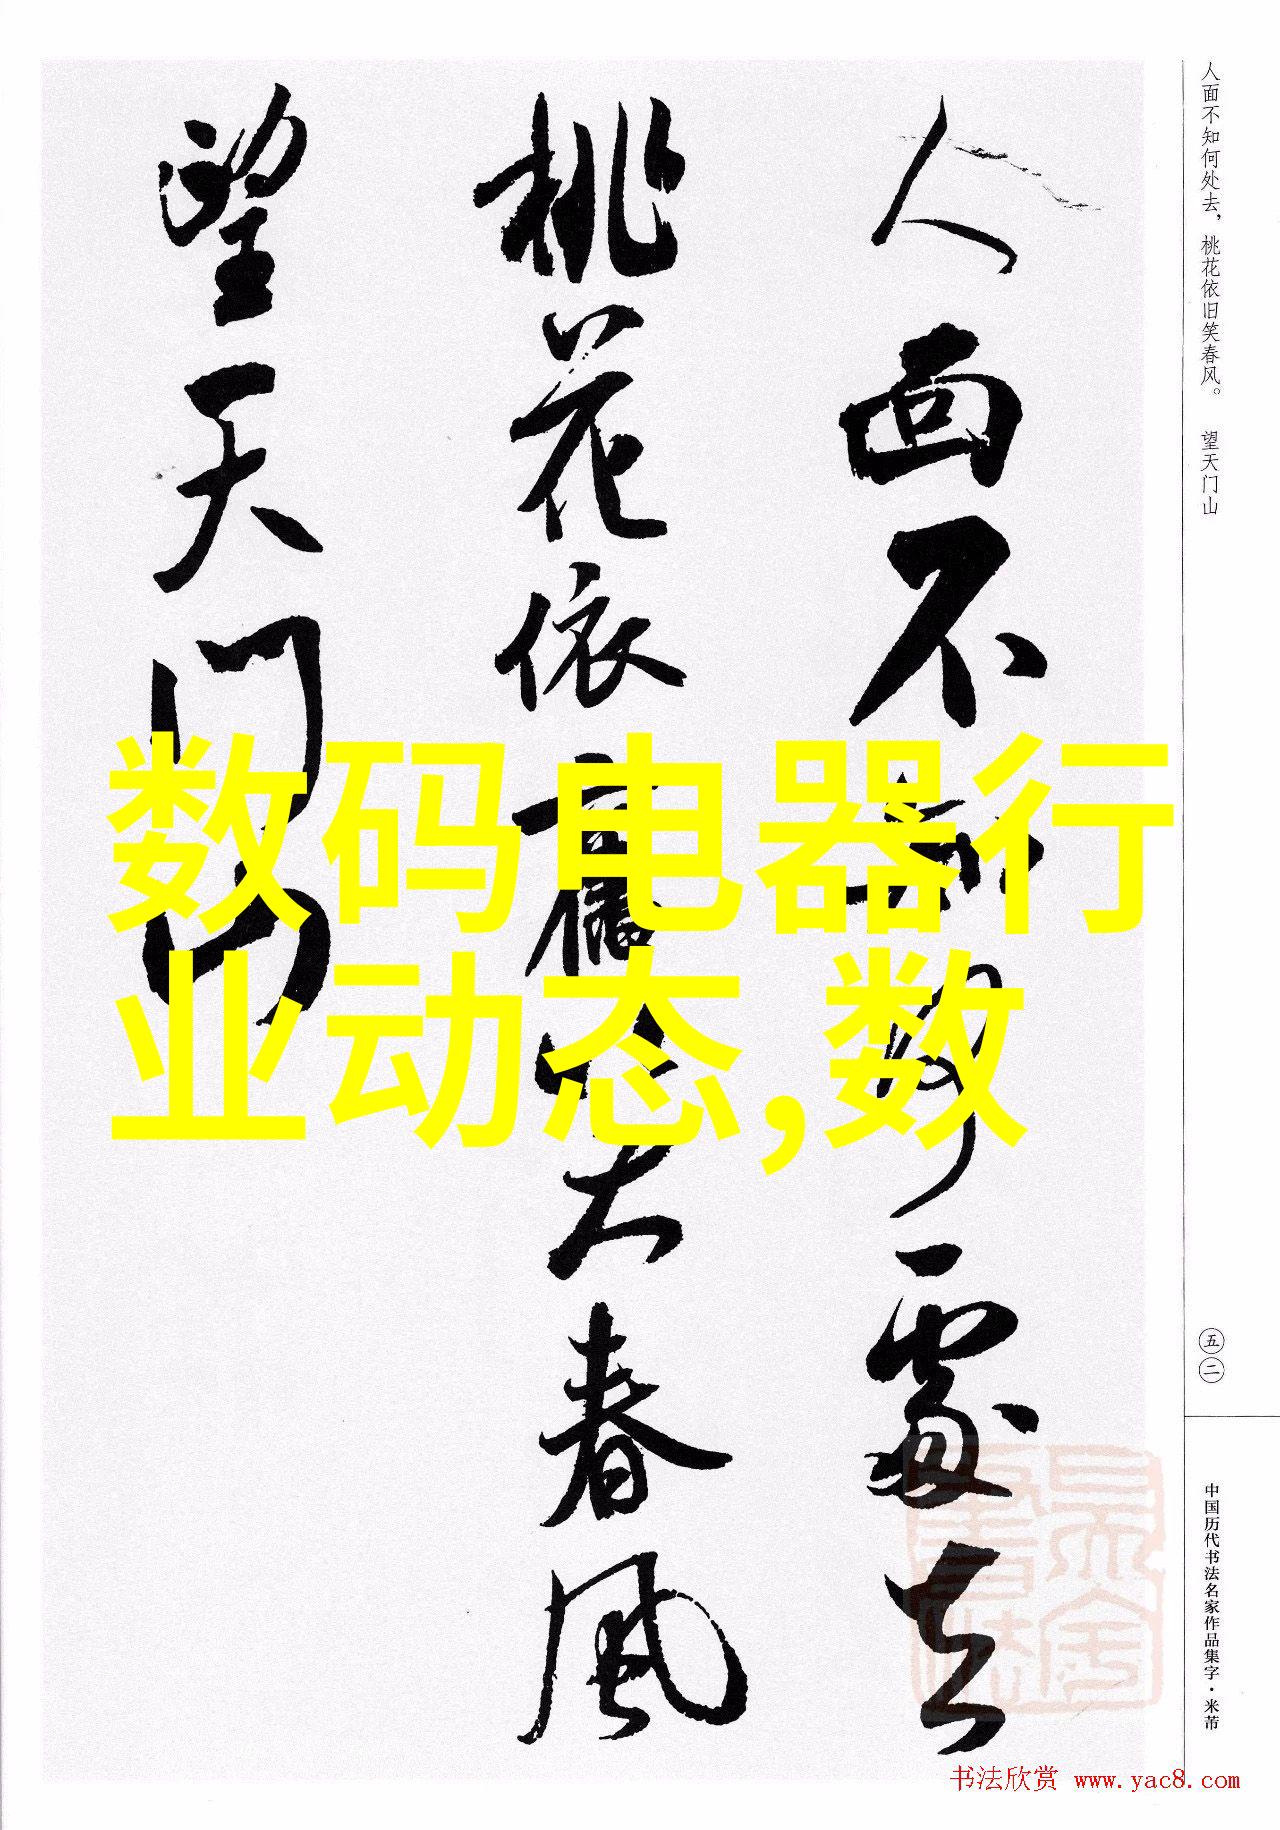 人面不知何处去，桃花依旧笑春风。 望天门山
人面不知何處去
桃花依舊笑春風
望天门山
数码电器行
业动态,数
五二
中国历代书法名家作品集字·米芾
书法欣赏 www.yac8.com